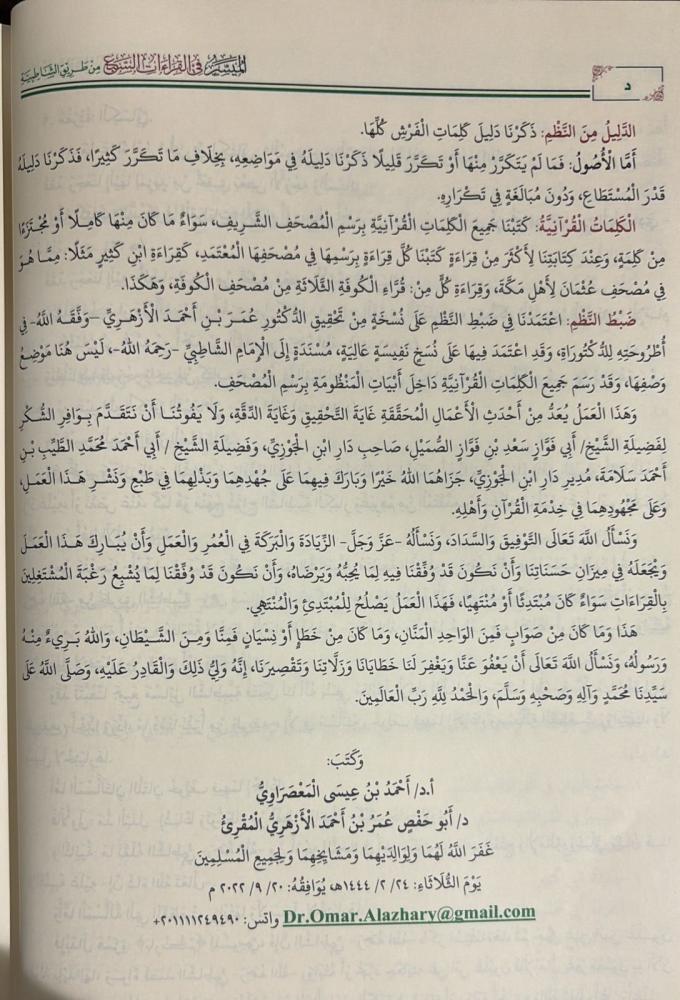 المُيَسَّرُ فِي القِرَاءَاتِ السَّبْعِ مِنْ طَرِيقِ الشَّاطِبِيَّةِ
د
الدَّلِيلُ مِنَ النَّظْمِ: ذَكَرْنَا دَلِيلَ كَلِمَاتِ الْفَرْشِ كُلِّهَا.
أَمَّا الْأُصُولُ: فَمَا لَمْ يَتَكَرَّرْ مِنْهَا أَوْ تَكَرَّرَ قَلِيلًا ذَكَرْنَا دَلِيلَهُ فِي مَوَاضِعِهِ، بِخِلَافِ مَا تَكَرَّرَ كَثِيرًا، فَذَكَرْنَا دَلِيلَهُ
قَدْرَ الْمُسْتَطَاعِ، وَدُونَ مُبَالَغَةٍ فِي تَكْرَارِهِ.
الْكَلِمَاتُ الْقُرْآنِيَّةُ: كَتَبْنَا جَمِيعَ الْكَلِمَاتِ الْقُرْآنِيَّةِ بِرَسْمِ الْمُصْحَفِ الشَّرِيفِ، سَوَاءٌ مَا كَانَ مِنْهَا كَامِلًا أَوْ مُجْتَزَءًا
مِنْ كَلِمَةٍ، وَعِنْدَ كِتَابَتِنَا لِأَكْثَرَ مِنْ قِرَاءَةٍ كَتَبْنَا كُلَّ قِرَاءَةٍ بِرَسْمِهَا فِي مُصْحَفِهَا الْمُعْتَمَدِ، كَقِرَاءَةِ ابْنِ كَثِيرٍ مَثَلًا: مِمَّا هُوَ
فِي مُصْحَفِ عُثْمَانَ لِأَهْلِ مَكَّةَ، وَقِرَاءَةِ كُلٍّ مِنْ: قُرَّاءِ الْكُوفَةِ الثَّلَاثَةِ مِنْ مُصْحَفِ الْكُوفَةِ، وَهَكَذَا.
ضَبْطُ النَّظْمِ: اعْتَمَدْنَا فِي ضَبْطِ النَّظْمِ عَلَى نُسْخَةٍ مِنْ تَحْقِيقِ الدُّكْتُورِ عُمَرَ بْنِ أَحْمَدَ الْأَزْهَرِيِّ -وَفَّقَهُ اللهُ- فِي
أُطْرُوحَتِهِ لِلدُّكْتُورَاةِ، وَقَدِ اعْتَمَدَ فِيهَا عَلَى نُسَخٍ نَفِيسَةٍ عَالِيَةٍ، مُسْنَدَةٍ إِلَى الْإِمَامِ الشَّاطِبِيِّ -رَحِمَهُ اللهُ-، لَيْسَ هُنَا مَوْضِعُ
وَصْفِهَا، وَقَدْ رَسَمَ جَمِيعَ الْكَلِمَاتِ الْقُرْآنِيَّةِ دَاخِلَ أَبْيَاتِ الْمَنْظُومَةِ بِرَسْمِ الْمُصْحَفِ.
وَهَذَا الْعَمَلُ يُعَدُّ مِنْ أَحْدَثِ الْأَعْمَالِ الْمُحَقَّقَةِ غَايَةَ التَّحْقِيقِ وَغَايَةَ الدِّقَّةِ، وَلَا يَفُوتُنَا أَنْ نَتَقَدَّمَ بِوَافِرِ الشُّكْرِ
لِفَضِيلَةِ الشَّيْخِ/ أَبِي فَوَّازٍ سَعْدِ بْنِ فَوَّازٍ الصُّمَيْلِ، صَاحِبِ دَارِ ابْنِ الْجَوْزِيِّ، وَفَضِيلَةِ الشَّيْخِ / أَبِي أَحْمَدَ مُحَمَّدِ الطَّيِّبِ بْنِ
أَحْمَدَ سَلَامَةَ، مُدِيرِ دَارِ ابْنِ الْجَوْزِيِّ، جَزَاهُمَا اللهُ خَيْرًا وَبَارَكَ فِيهِمَا عَلَى جُهْدِهِمَا وَبَذْلِهِمَا فِي طَبْعِ وَنَشْرِ هَذَا الْعَمَلِ،
وَعَلَى مَجْهُودِهِمَا فِي خِدْمَةِ الْقُرْآنِ وَأَهْلِهِ.
وَنَسْأَلُ اللهَ تَعَالَى التَّوْفِيقَ وَالسَّدَادَ، وَنَسْأَلُهُ -عَزَّ وَجَلَّ- الزِّيَادَةَ وَالْبَرَكَةَ فِي الْعُمُرِ وَالْعَمَلِ وَأَنْ يُبَارِكَ هَذَا الْعَمَلَ
وَيَجْعَلَهُ فِي مِيزَانِ حَسَنَاتِنَا وَأَنْ نَكُونَ قَدْ وُفِّقْنَا فِيهِ لِمَا يُحِبُّهُ وَيَرْضَاهُ، وَأَنْ نَكُونَ قَدْ وُفِّقْنَا لِمَا يُشْبِعُ رَغْبَةَ الْمُشْتَغِلِينَ
بِالْقِرَاءَاتِ سَوَاءٌ كَانَ مُبْتَدِئًا أَوْ مُنْتَهِيًا، فَهَذَا الْعَمَلُ يَصْلُحُ لِلْمُبْتَدِئِ وَالْمُنْتَهِي.
هَذَا وَمَا كَانَ مِنْ صَوَابٍ فَمِنَ الْوَاحِدِ الْمَنَّانِ، وَمَا كَانَ مِنْ خَطَإٍ أَوْ نِسْيَانٍ فَمِنَّا وَمِنَ الشَّيْطَانِ، وَاللهُ بَرِيءٌ مِنْهُ
وَرَسُولُهُ، وَنَسْأَلُ اللهَ تَعَالَى أَنْ يَعْفُوَ عَنَّا وَيَغْفِرَ لَنَا خَطَايَانَا وَزَلَّاتِنَا وَتَقْصِيرَنَا، إِنَّهُ وَلِيُّ ذَلِكَ وَالْقَادِرُ عَلَيْهِ، وَصَلَّى اللهُ عَلَى
سَيِّدِنَا مُحَمَّدٍ وَآلِهِ وَصَحْبِهِ وَسَلَّمَ، وَالْحَمْدُ لِلهِ رَبِّ الْعَالَمِينَ.
وَكَتَبَ:
أ.د/ أَحْمَدُ بْنُ عِيسَى الْمَعْصَرَاوِيُّ
د/ أَبُو حَفْصٍ عُمَرُ بْنُ أَحْمَدَ الْأَزْهَرِيُّ الْمُقْرِئُ
غَفَرَ اللهُ لَهُمَا وَلِوَالِدِيْهِمَا وَمَشَايِخِهِمَا وَلِجَمِيعِ الْمُسْلِمِينَ
يَوْمَ الثُّلَاثَاءِ: ٢٤/ ٢/ ١٤٤٤هـ، يُوَافِقُهُ: ٢٠/ ٩/ ٢٠٢٢ م
Dr.Omar.Alazhary@gmail.com واتس: ٢٠١١١١٢٤٩٤٩٠+